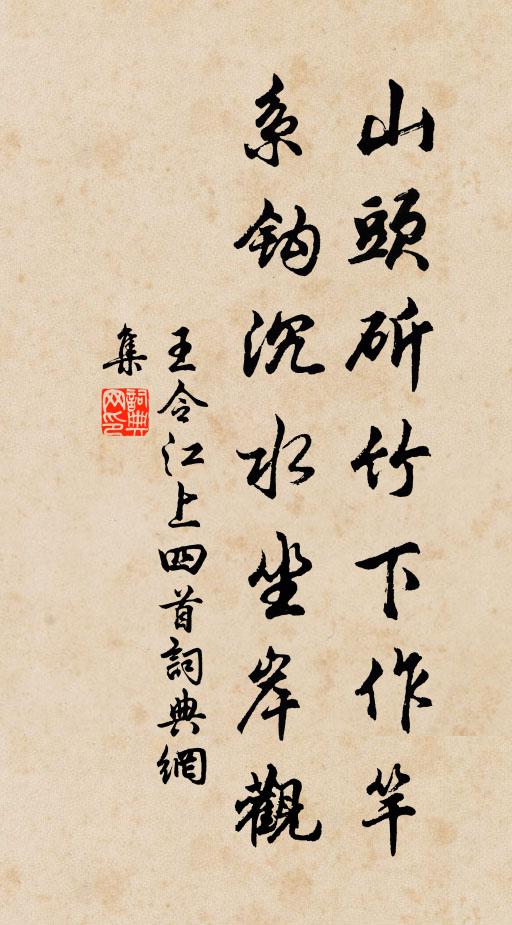 山頭斫竹下作竿
系鈎沉水坐岸觀
王令江上四首詞典網
集
詞典
网印